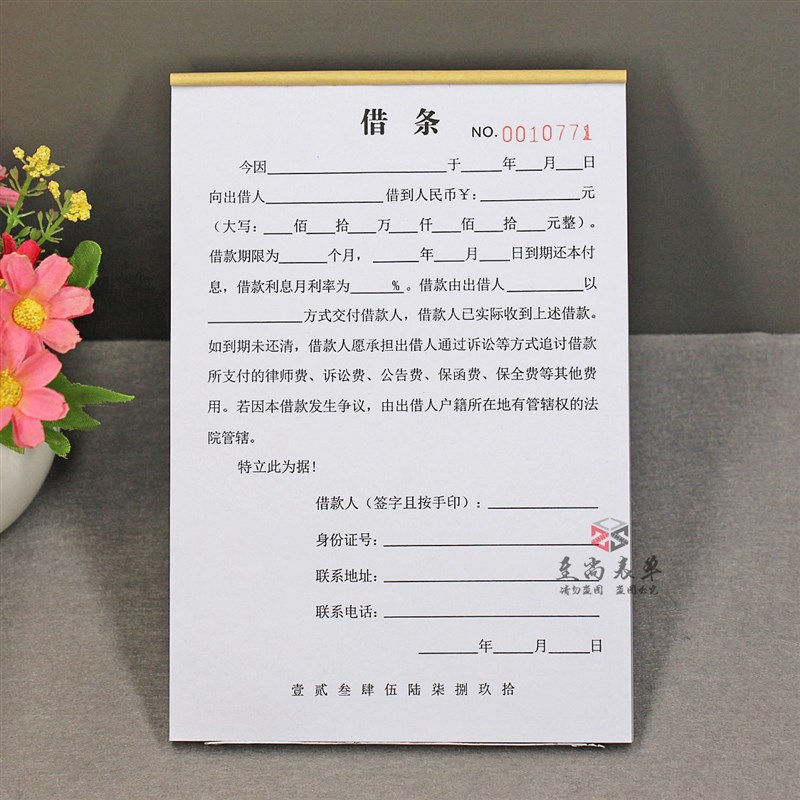 借 条 NO.0010771
今因____________________于_____年___月___日
向出借人_____________借到人民币¥:___________元
(大写:___佰___拾___万___仟___佰___拾___元整)。
借款期限为_____个月,_____年____月___日到期还本付
息,借款利息月利率为_____%。借款由出借人________以
__________方式交付借款人,借款人已实际收到上述借款。
如到期未还清,借款人愿承担出借人通过诉讼等方式追讨借款
所支付的律师费、诉讼费、公告费、保函费、保全费等其他费
用。若因本借款发生争议,由出借人户籍所在地有管辖权的法
院管辖。
特立此为据!
借款人(签字且按手印):____________
身份证号:________________________
联系地址:________________________
联系电话:________________________
________年____月____日
壹贰叁肆伍陆柒捌玖拾
ZS
至尚表单
请勿盗图 盗图必究